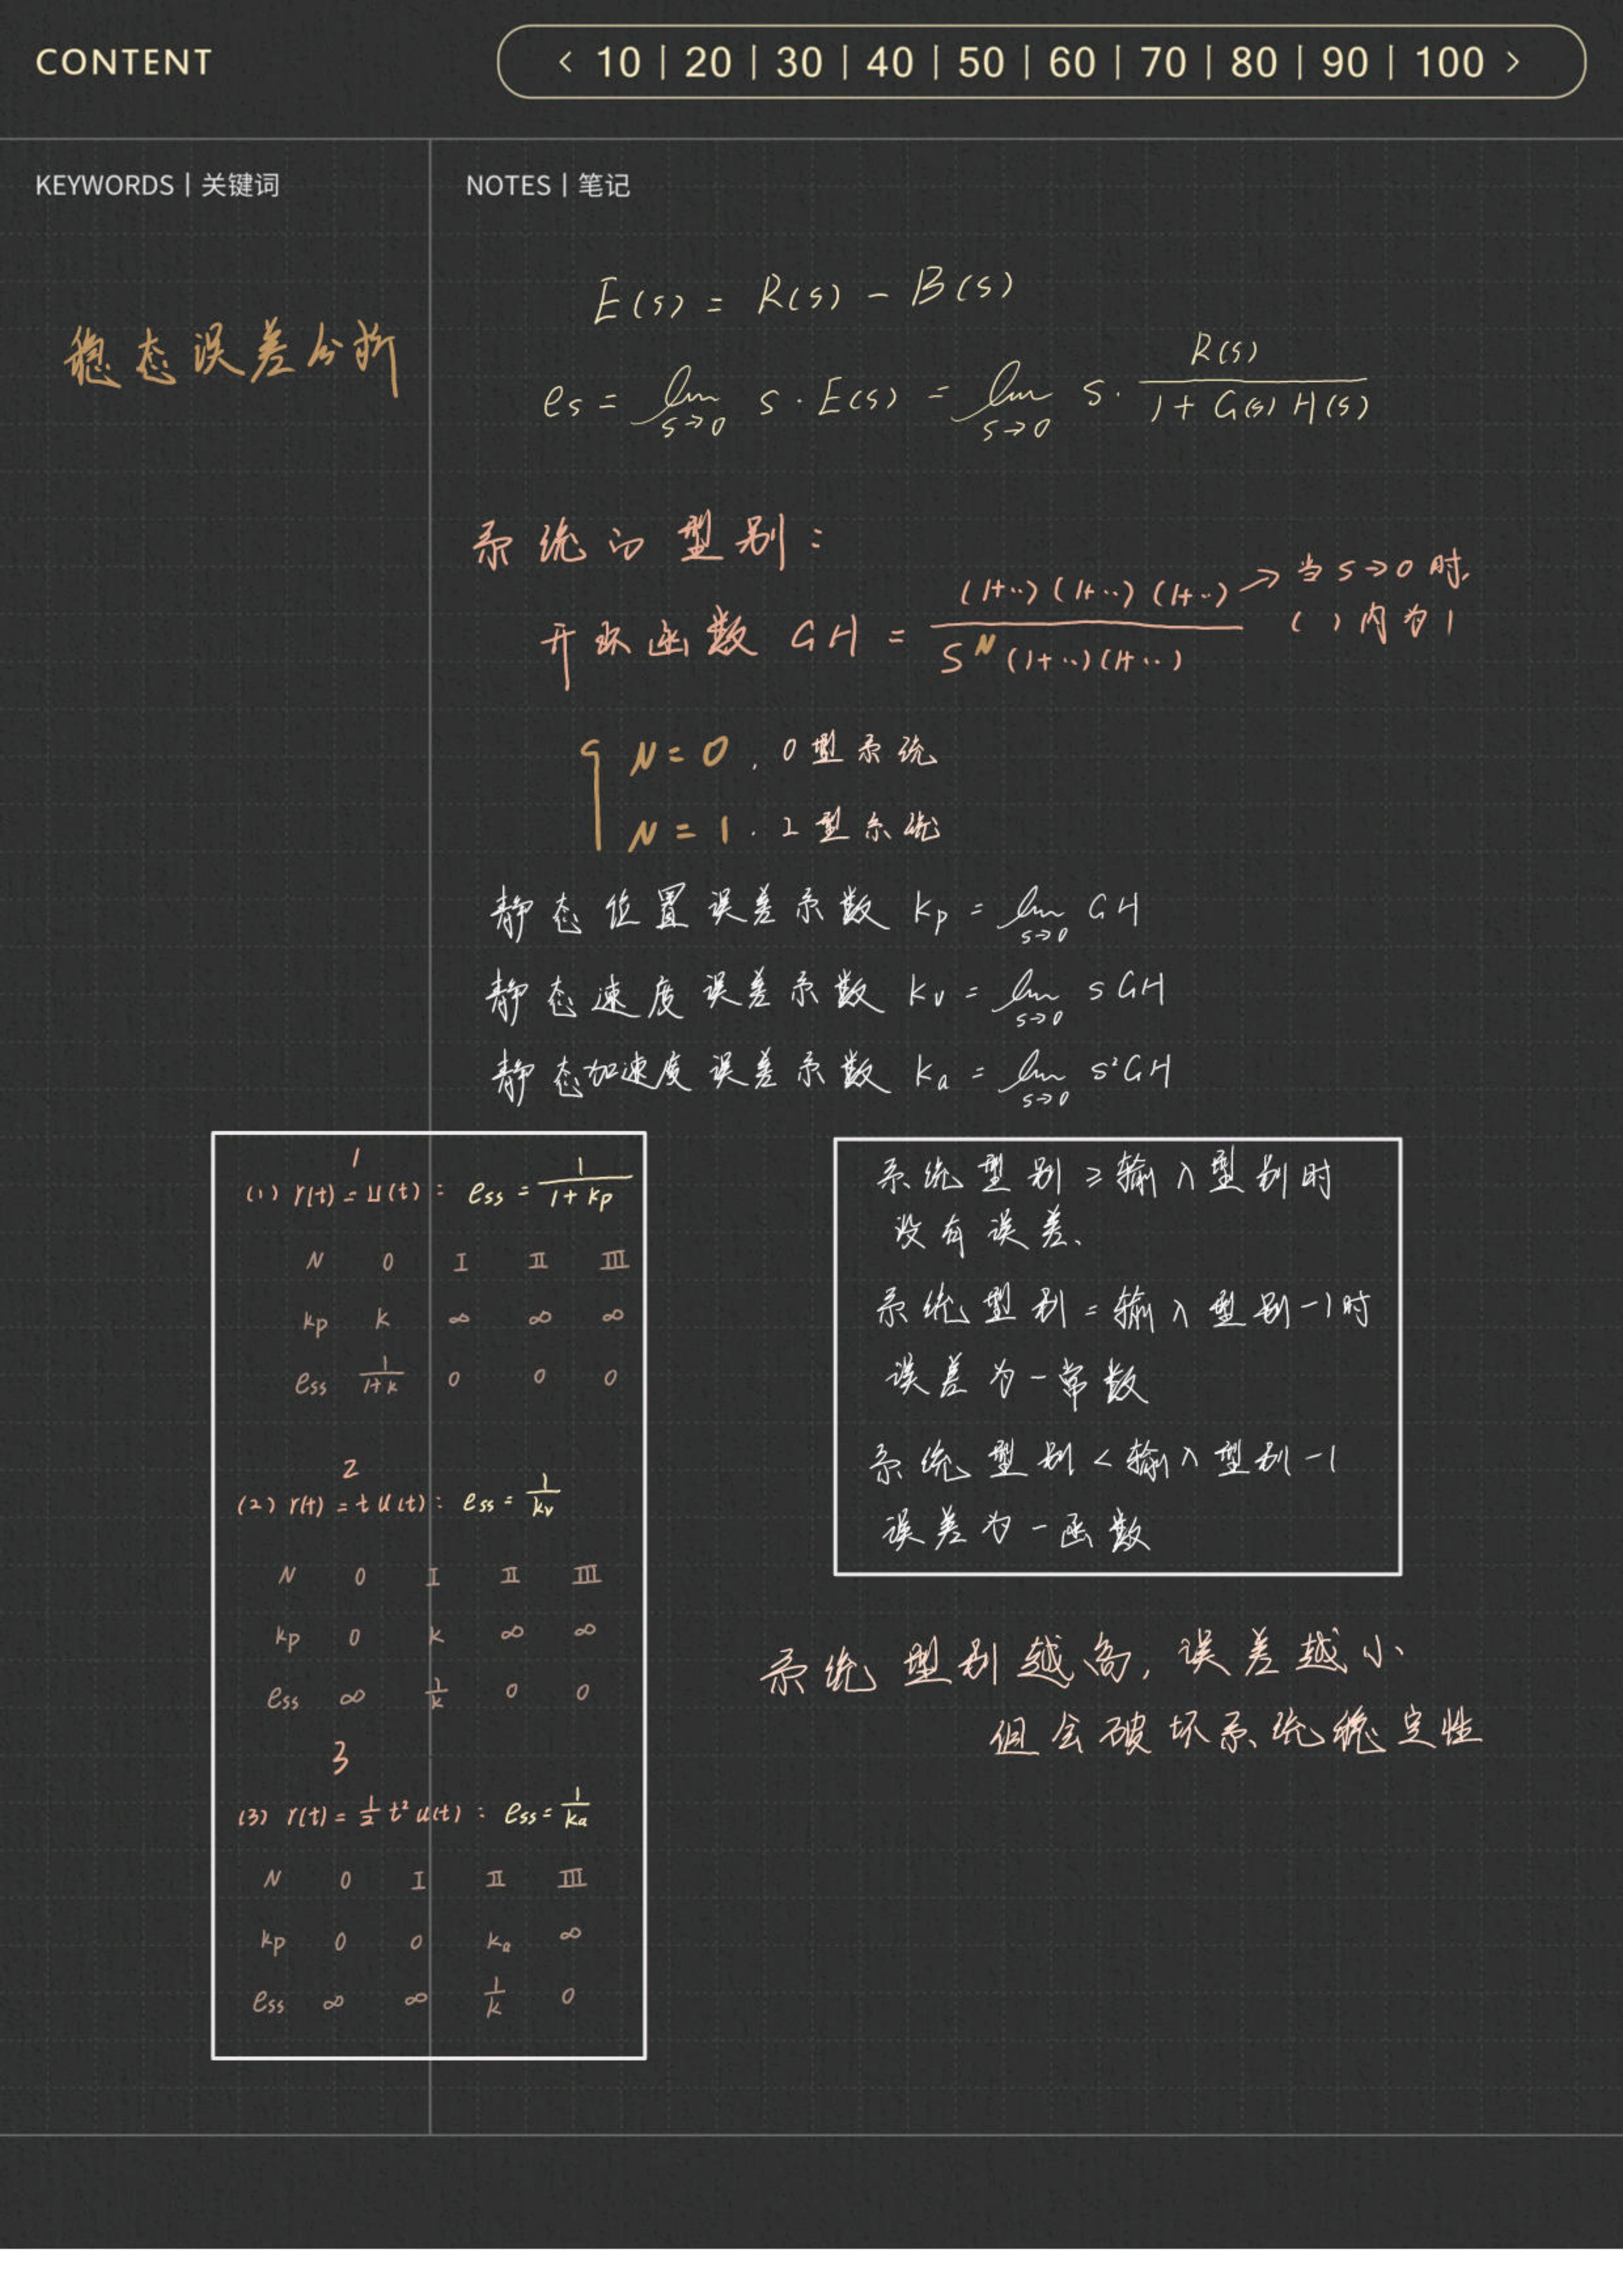 CONTENT
< 10 | 20 | 30 | 40 | 50 | 60 | 70 | 80 | 90 | 100 >
KEYWORDS | 关键词
NOTES | 笔记
稳态误差分析
E(s) = R(s) - B(s)
es = lim s→0 s · E(s) = lim s→0 s · R(s) / (1 + G(s) H(s))
系统的型别：
开环函数 GH = (1+..) (1+..) (1+..) / S^N (1+..) (1+..) → 当 s→0 时,
( ) 内为 1
N = 0 , 0 型系统
N = 1 . 2 型系统
静态位置误差系数 kp = lim s→0 GH
静态速度误差系数 kv = lim s→0 sGH
静态加速度误差系数 ka = lim s→0 s²GH
1
(1) r(t) = u(t) : ess = 1 / (1 + kp)
N 0 I II III
kp k ∞ ∞ ∞
ess 1/(1+k) 0 0 0
2
(2) r(t) = t u(t) : ess = 1/kv
N 0 I II III
kp 0 k ∞ ∞
ess ∞ 1/k 0 0
3
(3) r(t) = 1/2 t² u(t) : ess = 1/ka
N 0 I II III
kp 0 0 ka ∞
ess ∞ ∞ 1/k 0
系统型别 ≥ 输入型别时
没有误差、
系统型别 = 输入型别 -1时
误差为一常数
系统型别 < 输入型别 -1
误差为一函数
系统型别越高, 误差越小
但会破坏系统稳定性